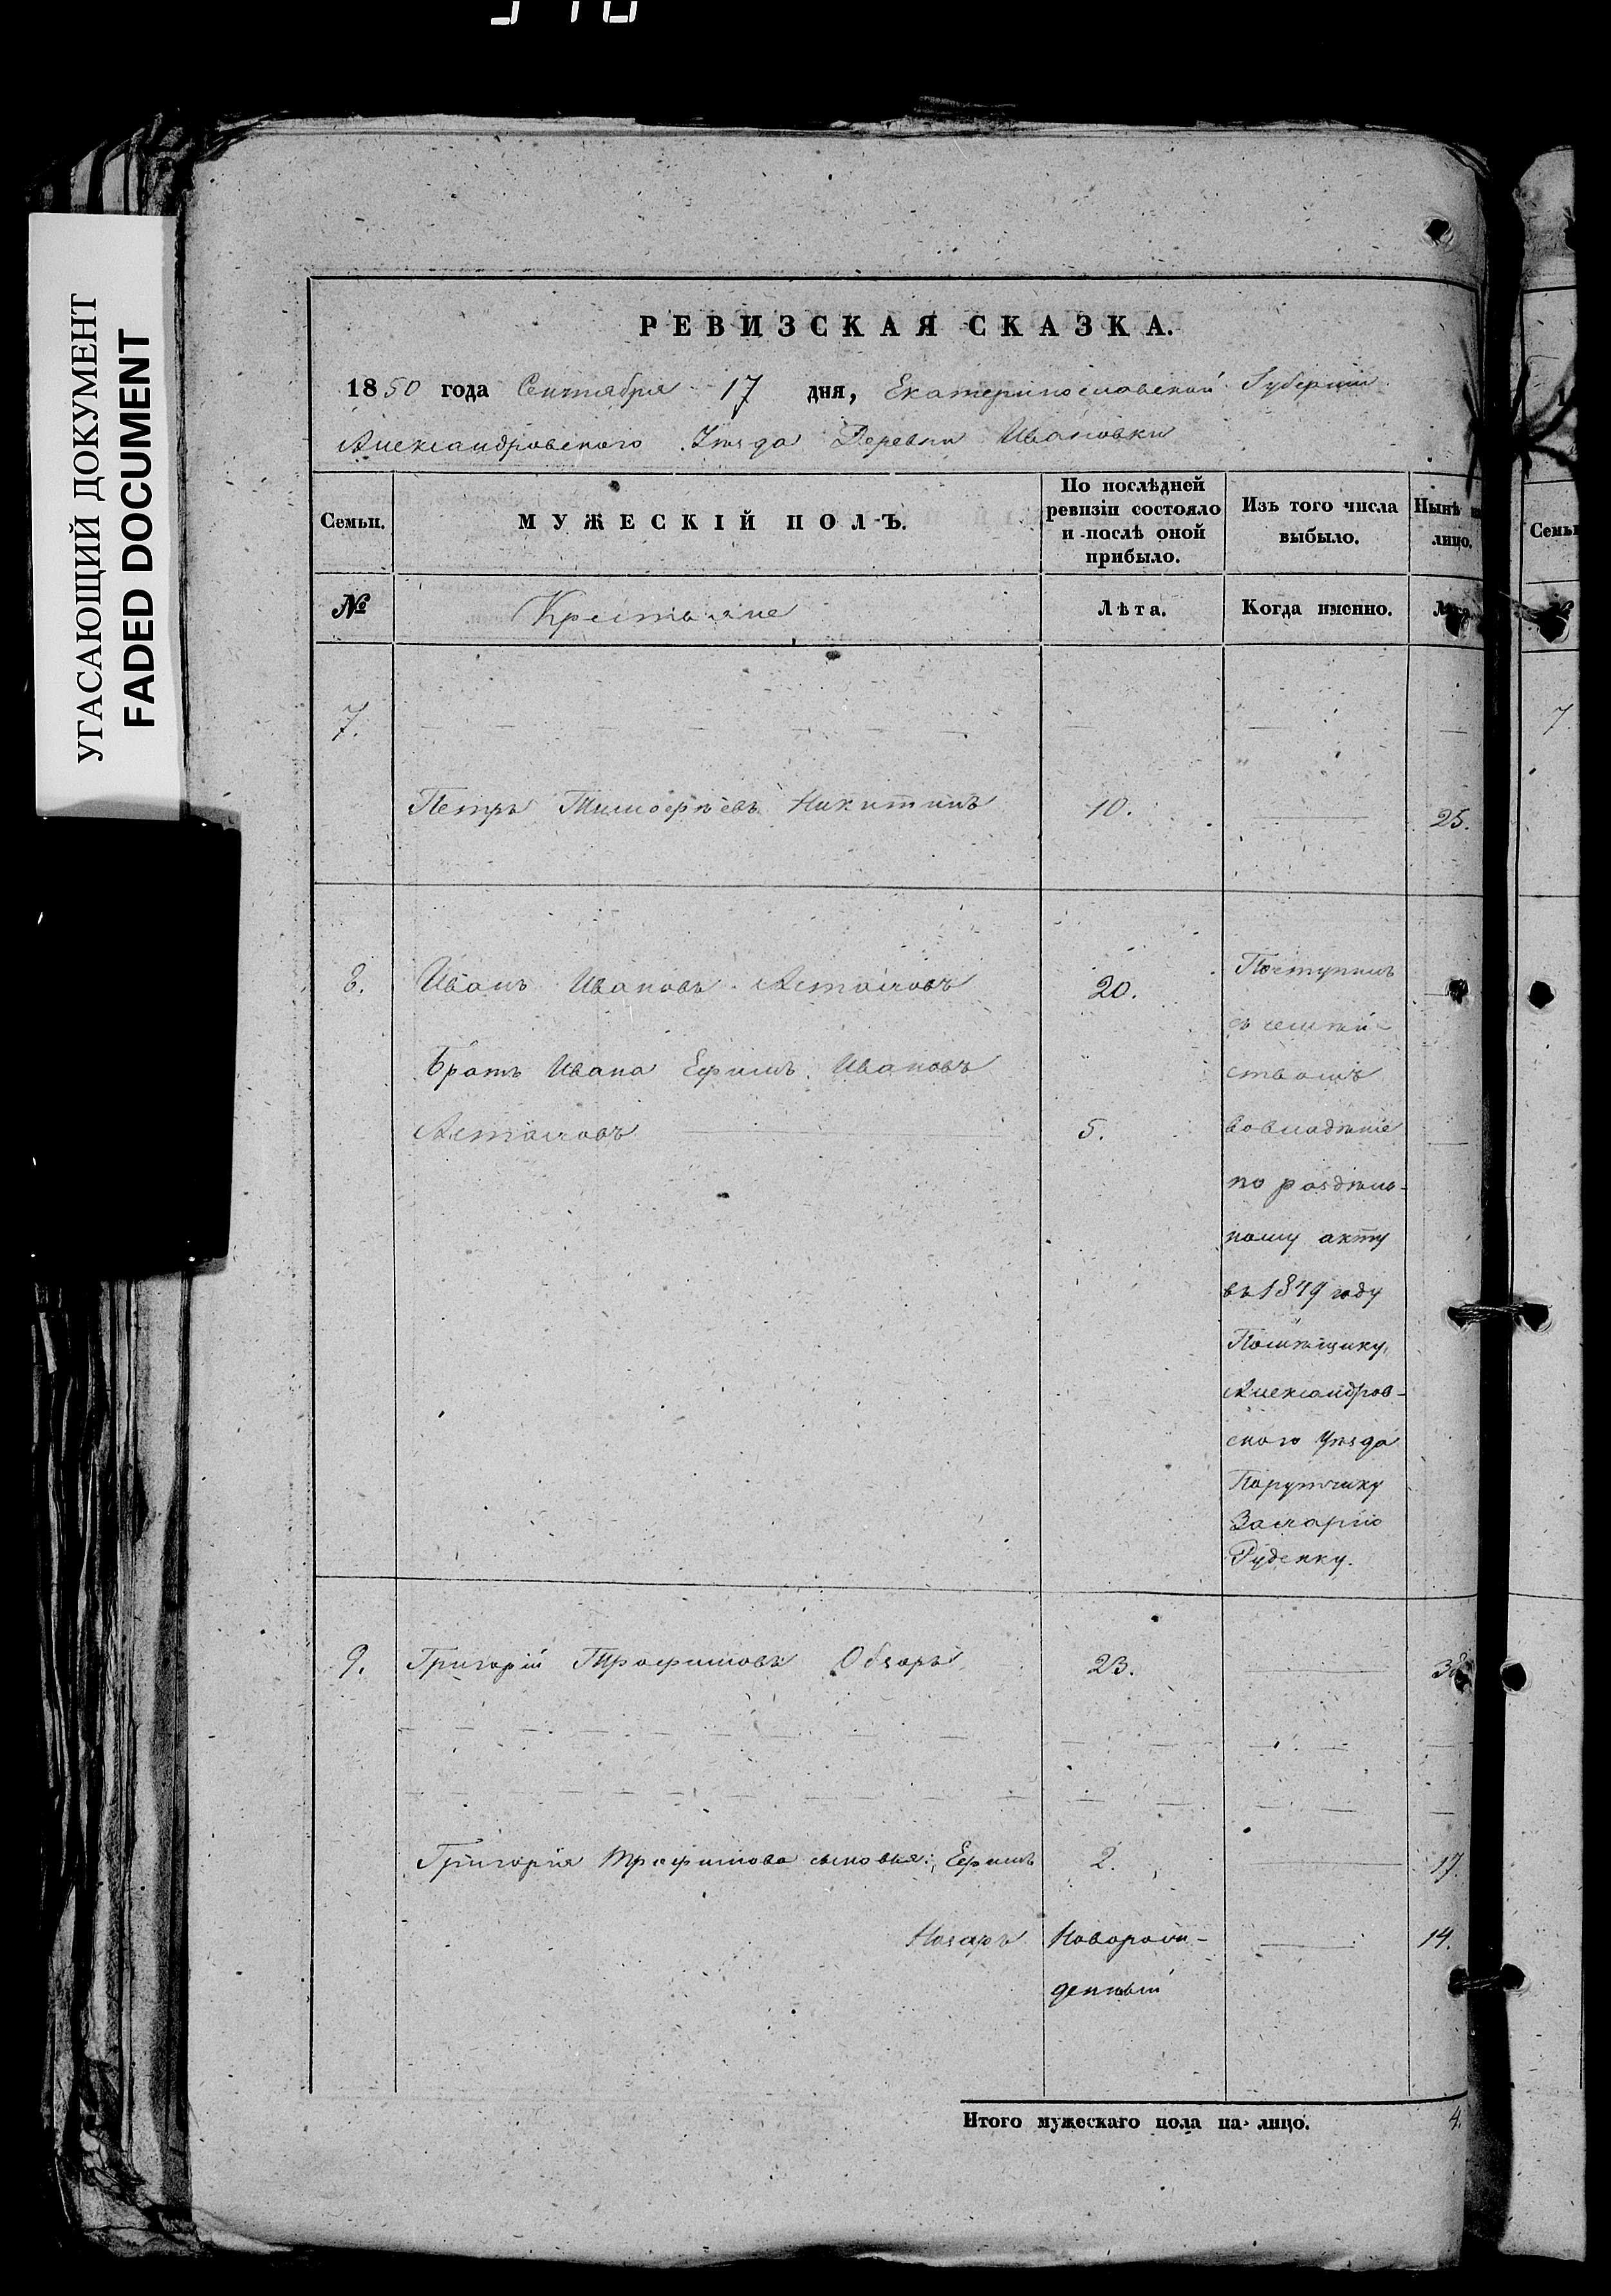 УГАСАЮЩИЙ ДОКУМЕНТ
FADED DOCUMENT
РЕВИЗСКАЯ СКАЗКА.
1850 года Сентября 17 дня, Екатеринославской Губернии
Александровского Уѣзда Деревни Ивановки
Семьи.
МУЖЕСКІЙ ПОЛЪ.
По послѣдней
ревизіи состояло
и послѣ оной
прибыло.
Изъ того числа
выбыло.
Нынѣ на
лицо.
Семьи
№
Крестьяне
Лѣта.
Когда именно.
Лѣта.
7.
7
Петръ Тимофѣевъ Никитинъ 10. 25.
8. Иванъ Ивановъ Астаховъ 20.
Братъ Ивана Ефимъ Ивановъ
Астаховъ 5.
Поступилъ
съ семѣй-
ствомъ
во владѣніе
по раздѣль-
ному акту
въ 1849 году
Помѣщику
Александров-
ского Уѣзда
Порутчику
Захарію
Руденку.
9. Григорій Трофимовъ Обзоръ 23. 38
Григорія Трофимова сыновья: Ефимъ 2. 17.
Назаръ Новорож- 14.
денный
Итого мужескаго пола на-лицо. 4.